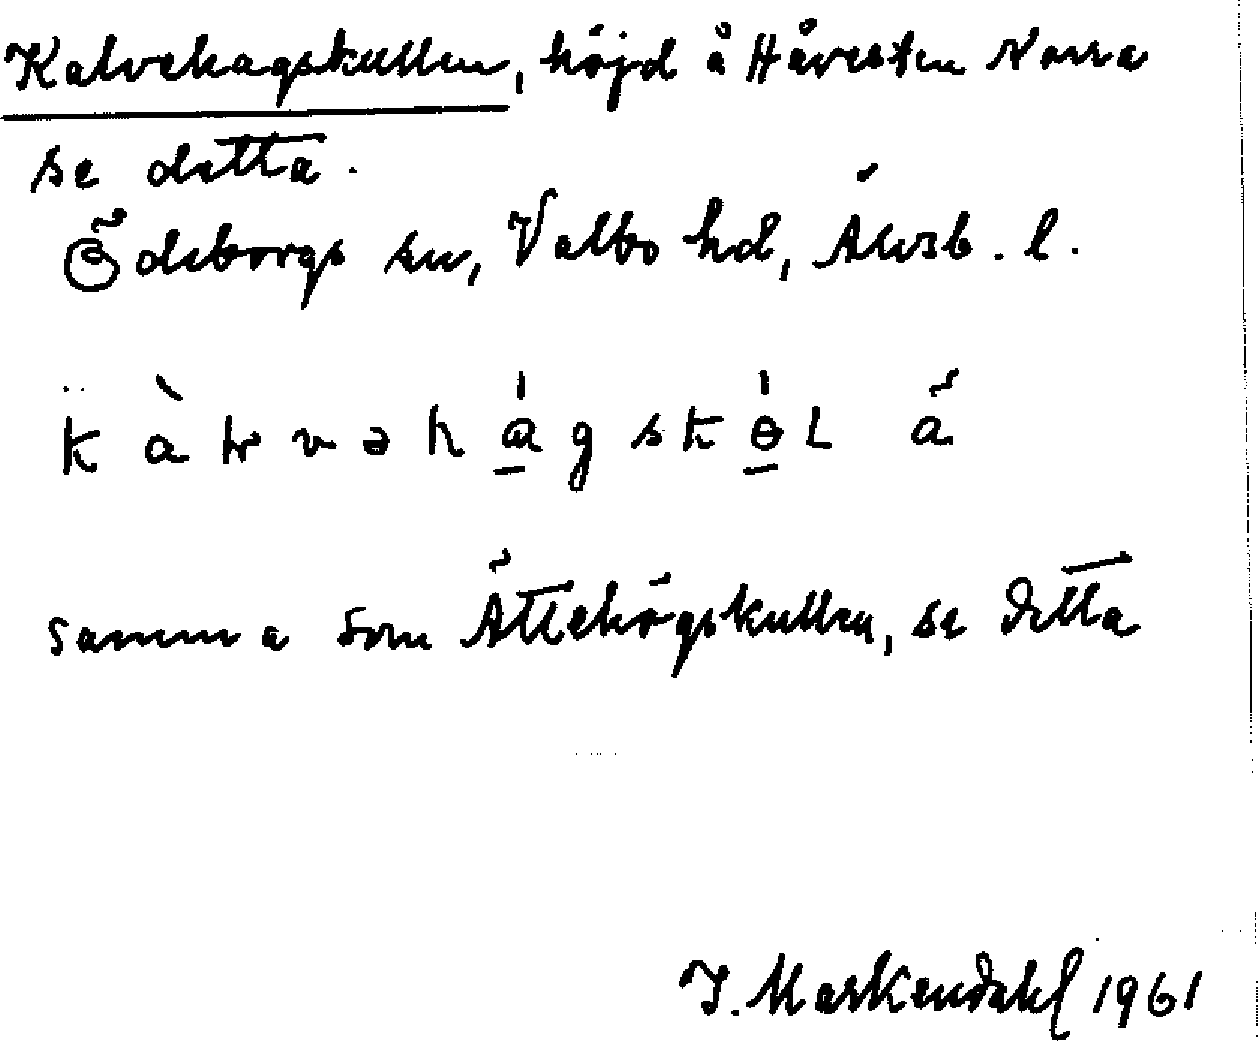 Kalvehagskullen, höjd å Håvesten Norra
se detta.
Ödeborgs sn, Valbo hd, Älvsb. l.
samma som Ättehögskullen, se detta
J. Markendahl 1961